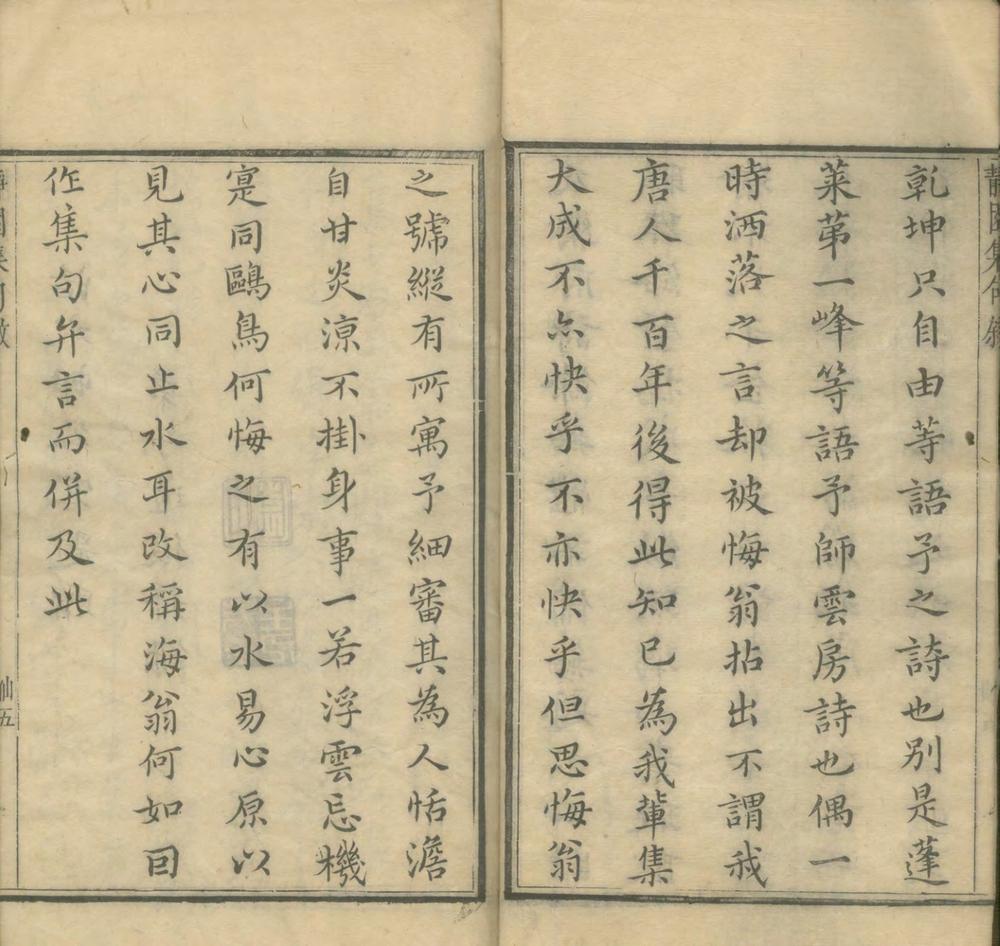 乾坤只自由等語予之詩也別是蓬
萊苐一峰等語予師雲房詩也偶一
時洒落之言却被悔翁拈出不謂我
唐人千百年後得此知已為我軰集
大成不亦快乎不亦快乎但思悔翁
之號縱有所寓予細審其為人恬澹
自甘炎涼不掛身事一若浮雲忘機
寔同鷗鳥何悔之有以水易心原以
見其心同止水耳改稱海翁何如囙
作集句弁言而併及此
仙五